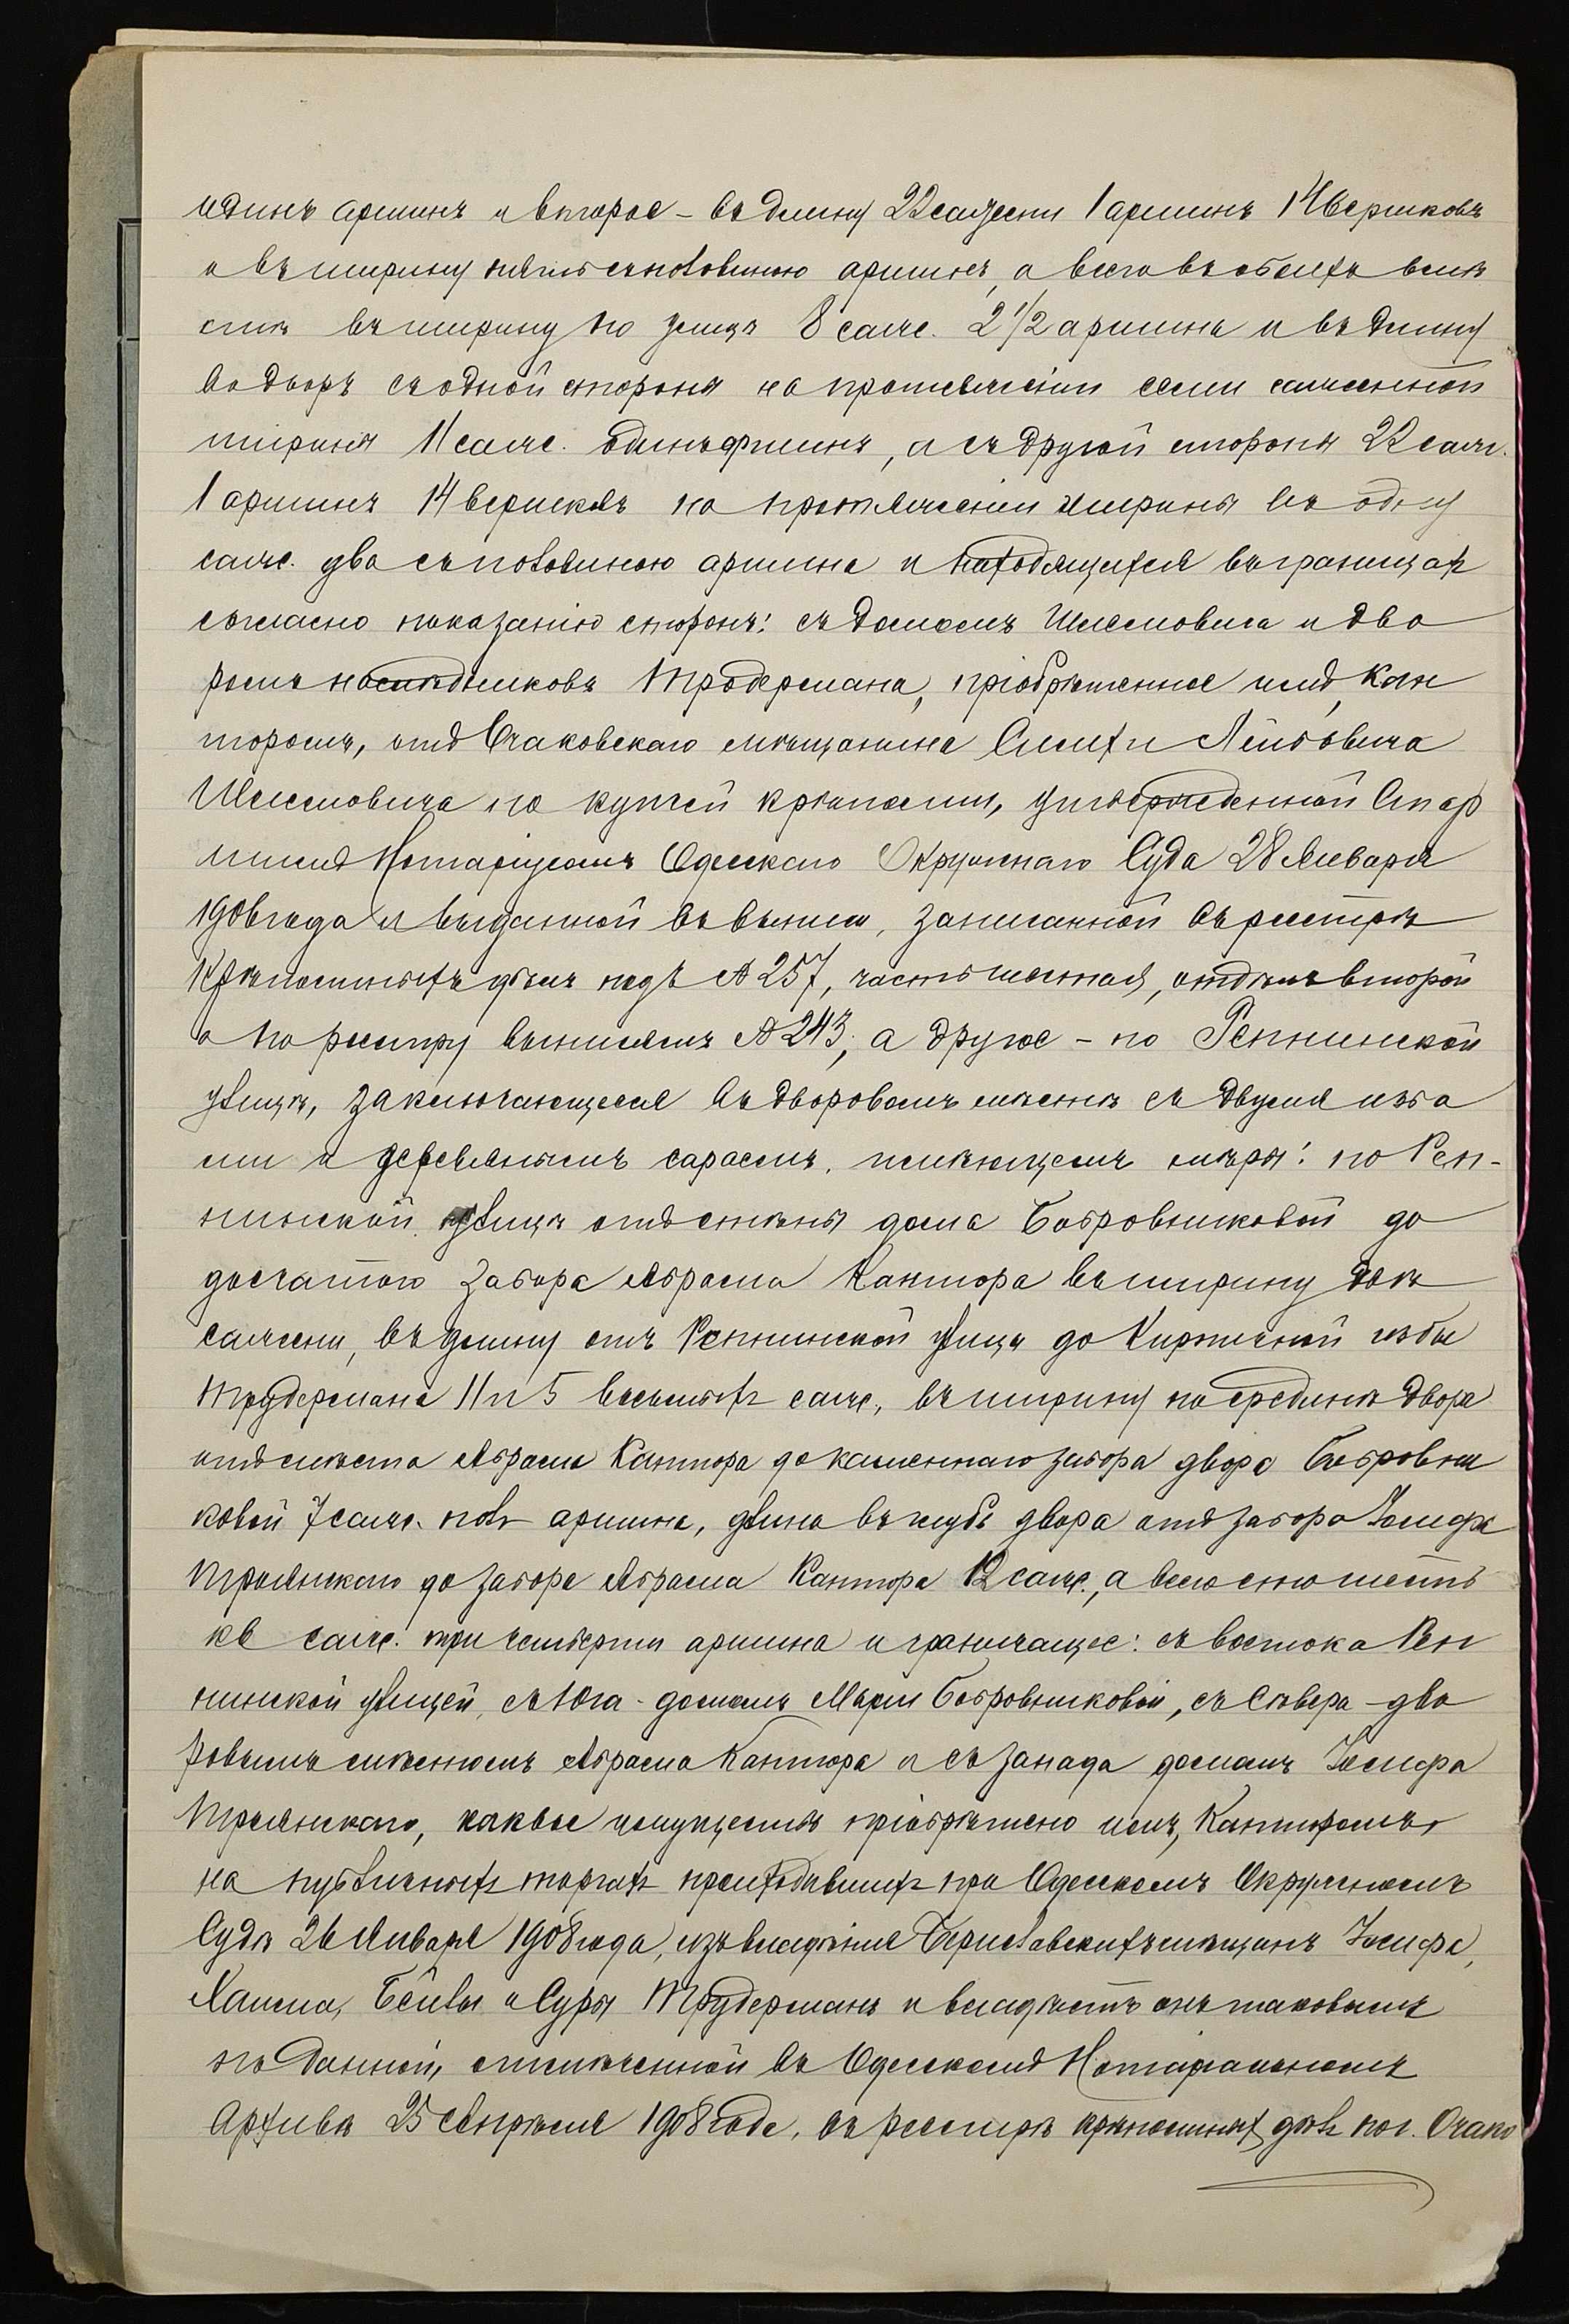 одинъ аршинъ и второе - въ длину 22 сажени 1 аршинъ 14 вершковъ
и въ ширину пять съ половиною аршинъ, а всего въ обоихъ мѣ
стъ въ ширину по улицѣ 8 саж. 2 1/2 аршина и въ длину
во дворъ съ одной стороны на протяженіи семи саженной
ширины 11 саж. одинъ аршинъ, а съ другой стороны 22 саж.
1 аршинъ 14 вершковъ на протяженіи ширины въ одну
саж. два съ половиною аршина и находящихся въ границах
согласно показанію сторонъ: съ домомъ Шлемовича и дво
ромъ наслѣдниковъ Трудермана, пріобрѣтенное имъ, Кан
торомъ, отъ Очаковскаго мѣщанина Симхи Лейбовича
Шлемовича по купчей крѣпости, утвержденной Стар
шимъ Нотаріусомъ Одесскаго Окружнаго Суда 28 Января
1906 года и выданной въ выписи, записанной въ реестрѣ
Крѣпостныхъ дѣлъ подъ № 257, часть шестая, отдѣлъ второй
и по реестру выписямъ № 243; а другое - по Репнинской
улицѣ, заключающееся въ дворовомъ мѣстѣ съ двумя изба
ми и деревяннымъ сараемъ, имѣющемъ мѣры: по Реп-
нинской улицѣ отъ стѣны дома Бобровниковой до
досчатого забора Абрама Кантора въ ширину двѣ
сажени, въ длину отъ Репнинской улицы до Кирпичной избы
Трудермана 11 и 5 восьмыхъ саж., въ ширину по срединѣ двора
отъ мѣста Абрама Кантора до каменнаго забора двора Бобровни
ковой 7 саж. пол аршина, длина въ глубь двора отъ забора Іосифа
Троянскаго до забора Абрама Кантора 12 саж., а всего сто шесть
кв саж. три четверти аршина и граничащее: съ востока Реп
нинской улицей, съ Юга - домомъ Маріи Бобровниковой, съ Сѣвера - дво
ровымъ мѣстомъ Абрама Кантора и съ запада домомъ Іосифа
Троянскаго, каковое имущество пріобрѣтено имъ, Канторомъ,
на публичныхъ торгахъ происходившихъ при Одесскомъ Окружномъ
Судѣ 26 Января 1908 года, изъ владѣнія Бериславскихъ мѣщанъ Іосифа,
Хаима, Бейлы и Суры Трудерманъ и владѣетъ онъ таковымъ
по данной, отмѣченной въ Одесскомъ Нотаріальномъ
Архивѣ 25 Апрѣля 1908 года, въ реестрѣ крѣпостных дѣлъ пог. Очако